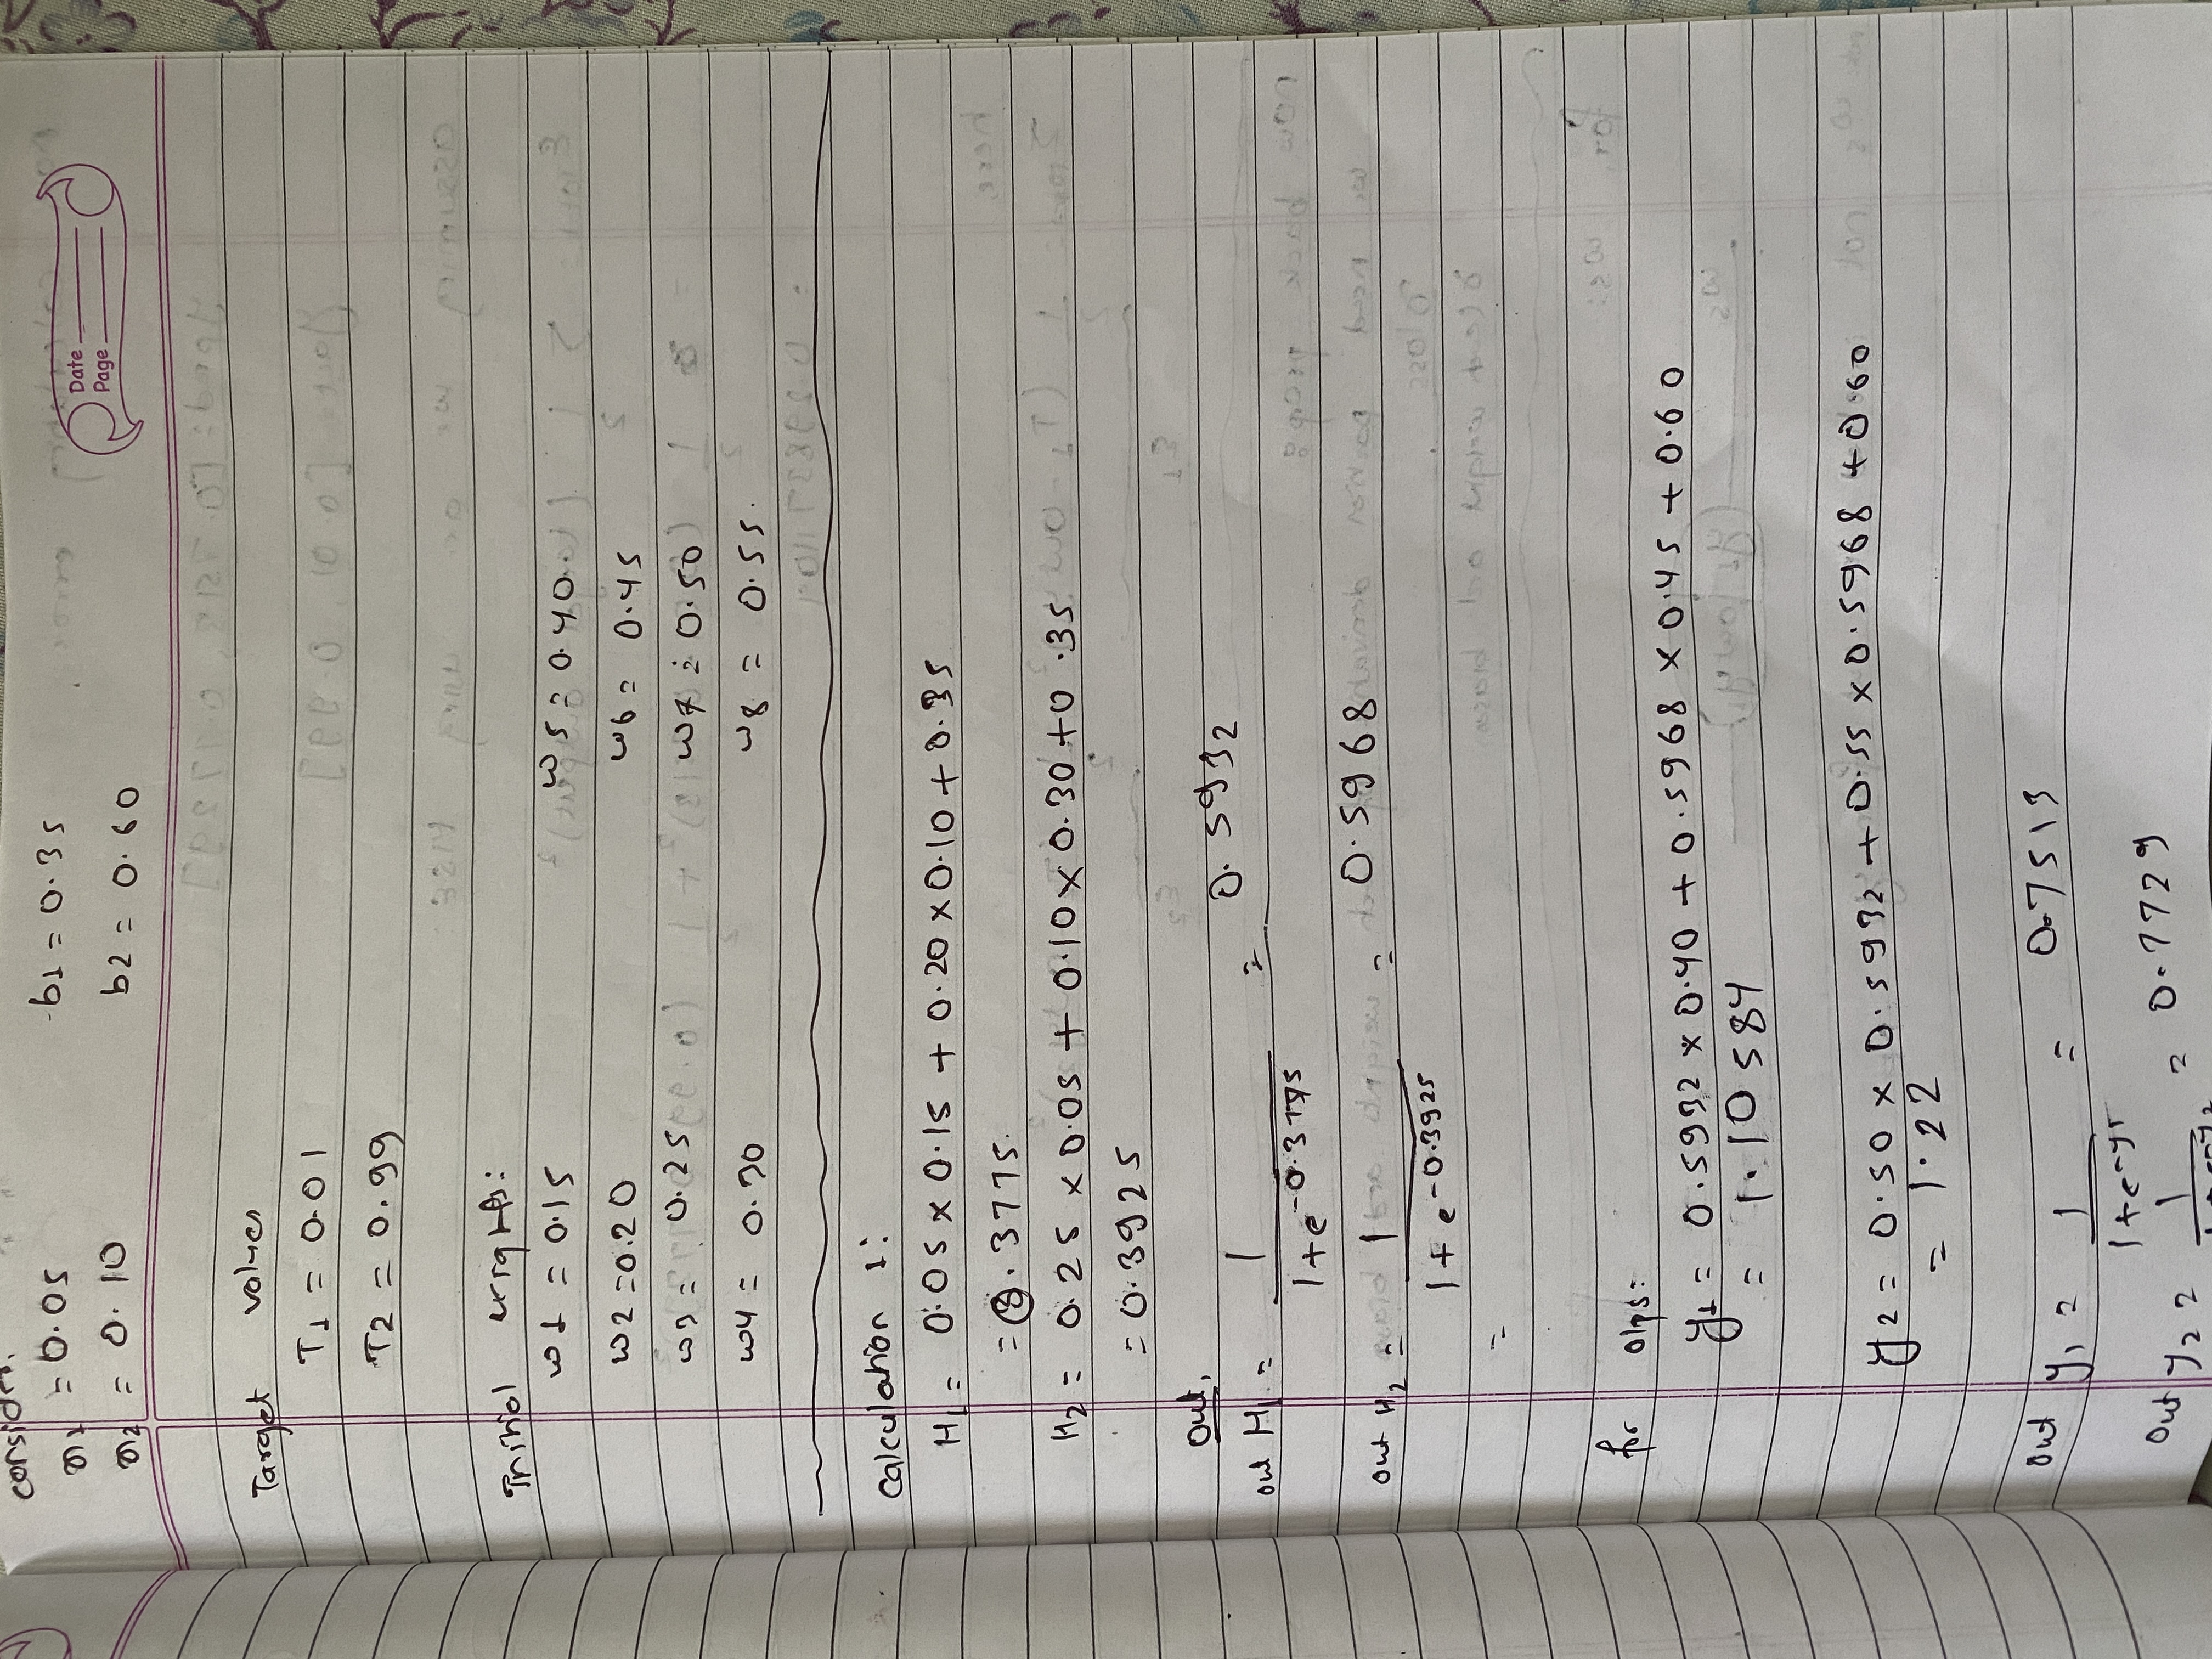 consider,
x1 = 0.05 b1 = 0.35
x2 = 0.10 b2 = 0.60
Date
Page
Target values
T1 = 0.01
T2 = 0.99
Initial weights:
w1 = 0.15 w5 = 0.40
w2 = 0.20 w6 = 0.45
w3 = 0.25 w7 = 0.50
w4 = 0.30 w8 = 0.55.
Calculation 1:
H1 = 0.05 x 0.15 + 0.20 x 0.10 + 0.35
= 0.3775.
H2 = 0.25 x 0.05 + 0.10 x 0.30 + 0.35
= 0.3925
Out,
out H1 = 1 / 1+e^-0.3775 = 0.5932
out H2 = 1 / 1+e^-0.3925 = 0.5968
=
for o/ps:
y1 = 0.5932 x 0.40 + 0.5968 x 0.45 + 0.60
= 1.10584
y2 = 0.50 x 0.5932 + 0.55 x 0.5968 + 0.60
= 1.22
Out y1 = 1 / 1+e^-y1 = 0.7513
Out y2 = 1 / 1+e^-y2 = 0.7729